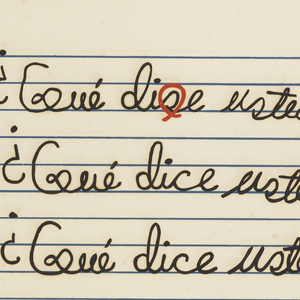 ¿Qué dise uste
¿Qué dice uste
¿Qué dice uste